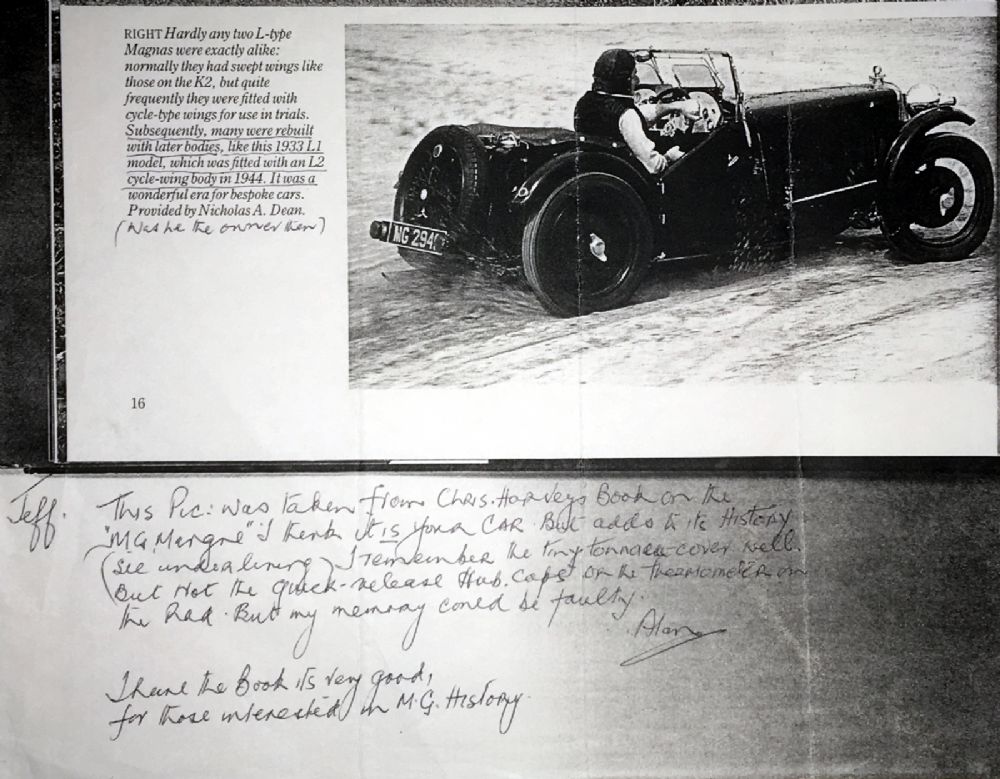 RIGHT Hardly any two L-type
Magnas were exactly alike:
normally they had swept wings like
those on the K2, but quite
frequently they were fitted with
cycle-type wings for use in trials.
Subsequently, many were rebuilt
with later bodies, like this 1933 L1
model, which was fitted with an L2
cycle-wing body in 1944. It was a
wonderful era for bespoke cars.
Provided by Nicholas A. Dean.
(Was he the owner then)
MG 294
16
Jeff.
This Pic: was taken from Chris. Harveys Book on the
"M.G. " I think it is your CAR. But adds to its History
(see underlining) I remember the tiny tonneau-cover well
But Not the quick-release Hub. caps or the thermometer on
the Rad. But my memory could be faulty.
Alan
I have the Book its very good,
for those interested in M.G. History.